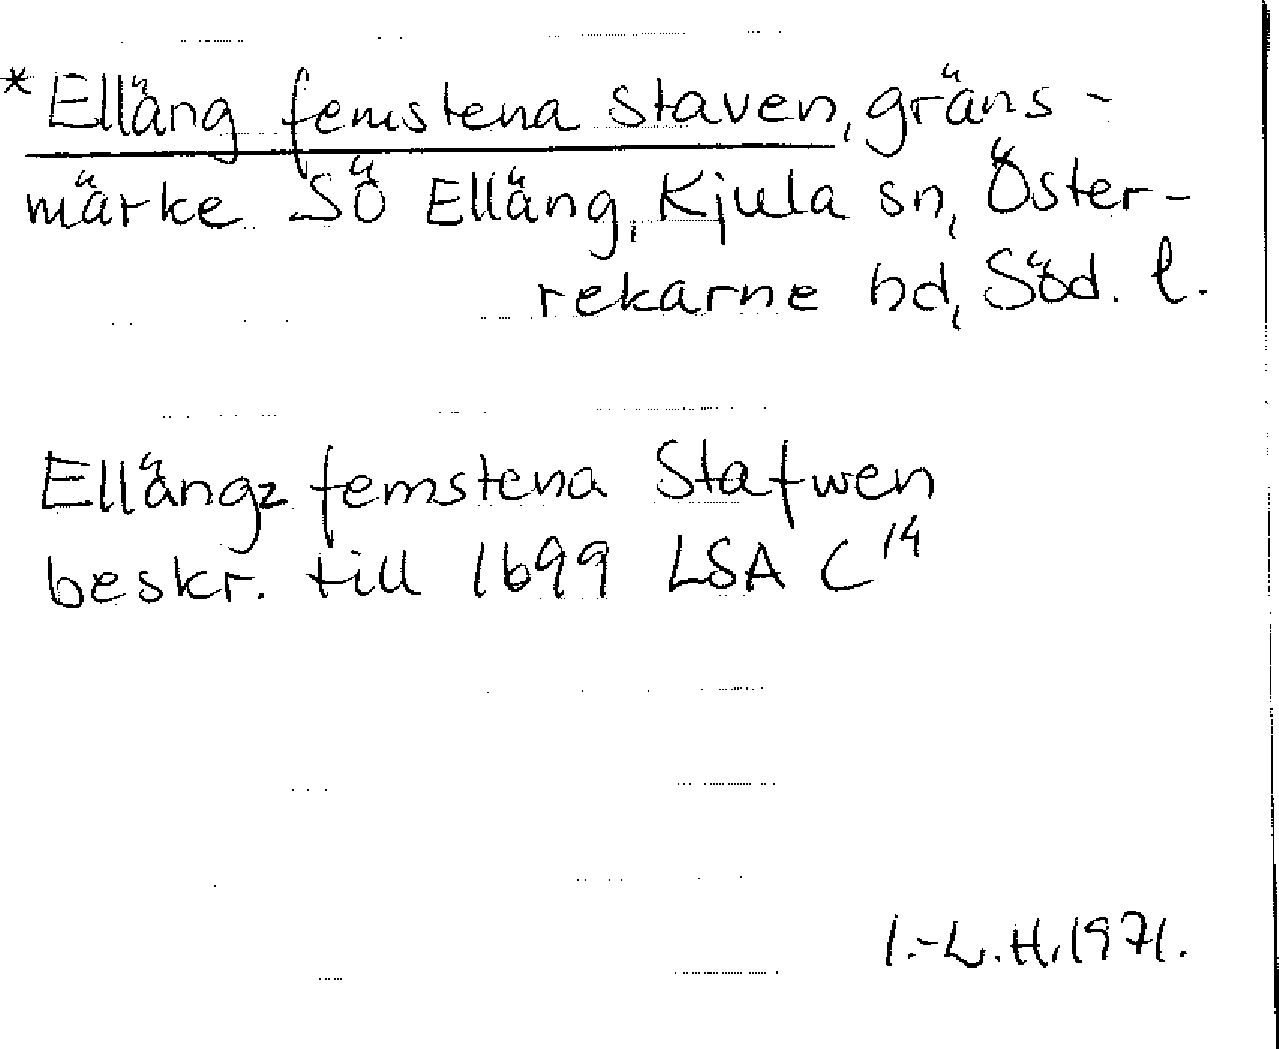 *Elläng femstena staven, gräns-
märke SÖ Elläng, Kjula sn, Öster-
rekarne hd, Söd. l.
Ellängz femstena Stafwen
beskr. till 1699 LSA C14
I.-L.H. 1971.